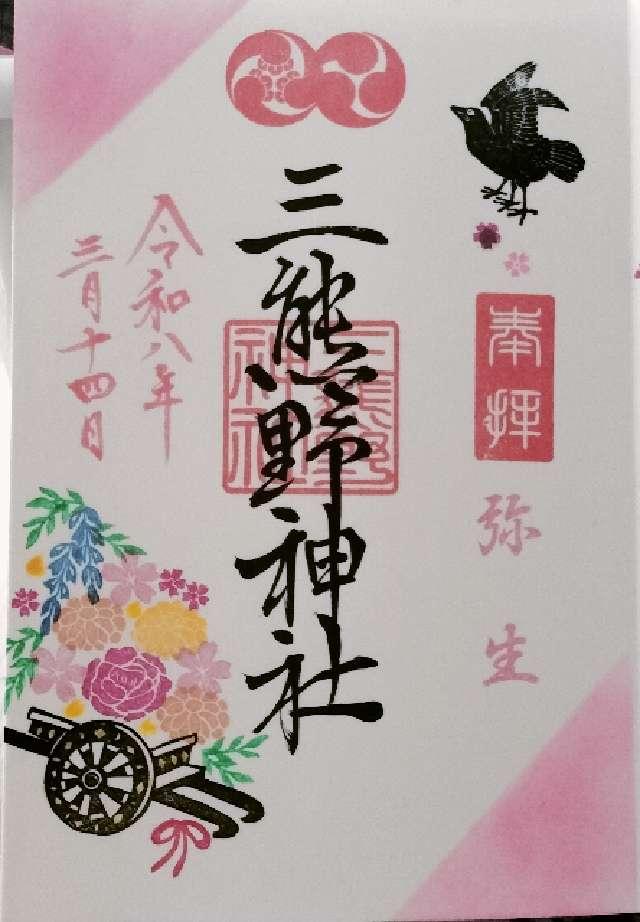 奉拝
弥生
三熊野神社
三熊野
神社
令和八年
三月十四日